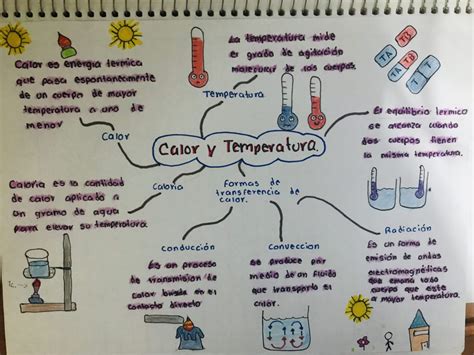 Calor es energía termica
que pasa espontaneamente
de un cuerpo de mayor
temperatura a uno de
menor
Calor
La temperatura mide
el grado de agitación
molecular de los cuerpos.
Temperatura
TA
TB
TA
TB
T
T
El equilibrio termico
se alcanza cuando
dos cuerpos tienen
la misma temperatura.
Calor y Temperatura.
Caloria es la cantidad
de calor aplicado a
un gramo de agua
para elevar su temperatura.
Caloria
Formas de
transferencia de
calor.
Conducción
Es un proceso
de transmision de
calor basado en el
contacto directo
Conveccion
Se produce por
medio de un fluido
que transporta el
calor.
Radiación
Es un forma de
emisión de ondas
electromagnéticas
que emana todo
cuerpo que este
a mayor temperatura.